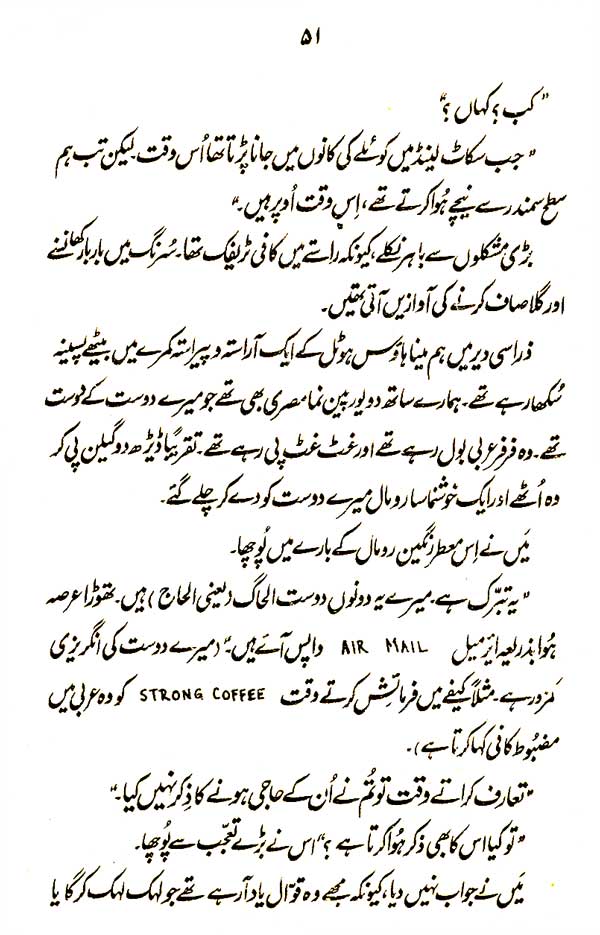 ۵۱
"کب؟ کہاں؟"
"جب سکاٹ لینڈ میں کوئلے کی کانوں میں جانا پڑتا تھا اُس وقت۔ لیکن تب ہم
سطح سمندر سے نیچے ہُوا کرتے تھے، اِس وقت اُوپر ہیں۔"
بڑی مشکلوں سے باہر نکلے، کیونکہ راستے میں کافی ٹریفک تھا۔ سُرنگ میں بار بار کھانسنے
اور گلا صاف کرنے کی آوازیں آتی تھیں۔
ذرا سی دیر میں ہم مینا ہاؤس ہوٹل کے ایک آراستہ و پیراستہ کمرے میں بیٹھے پسینہ
سُکھا رہے تھے۔ ہمارے ساتھ دو یورپین نما مصری بھی تھے جو میرے دوست کے دوست
تھے۔ وہ فرفر عربی بول رہے تھے اور غٹ غٹ پی رہے تھے۔ تقریباً ڈیڑھ دو گیلن پی کر
وہ اُٹھے اور ایک خوشنما سا رومال میرے دوست کو دے کر چلے گئے۔
مَیں نے اِس معطر رنگین رومال کے بارے میں پُوچھا۔
"یہ تبرّک ہے۔ میرے یہ دونوں دوست الحاگ (یعنی الحاج) ہیں۔ تھوڑا عرصہ
ہُوا بذریعہ ایرمیل AIR MAIL واپس آئے ہیں۔" (میرے دوست کی انگریزی
کمزور ہے۔ مثلاً کیفے میں فرمائش کرتے وقت STRONG COFFEE کو وہ عربی میں
مضبُوط کافی کہا کرتا ہے)۔
"تعارف کراتے وقت تو تُم نے اُن کے حاجی ہونے کا ذِکر نہیں کیا۔"
"تو کیا اس کا بھی ذکر ہُوا کرتا ہے؟" اس نے بڑے تعجّب سے پُوچھا۔
مَیں نے جواب نہیں دیا، کیونکہ مجھے وہ قوّال یاد آرہے تھے جو لہک لہک کر گایا